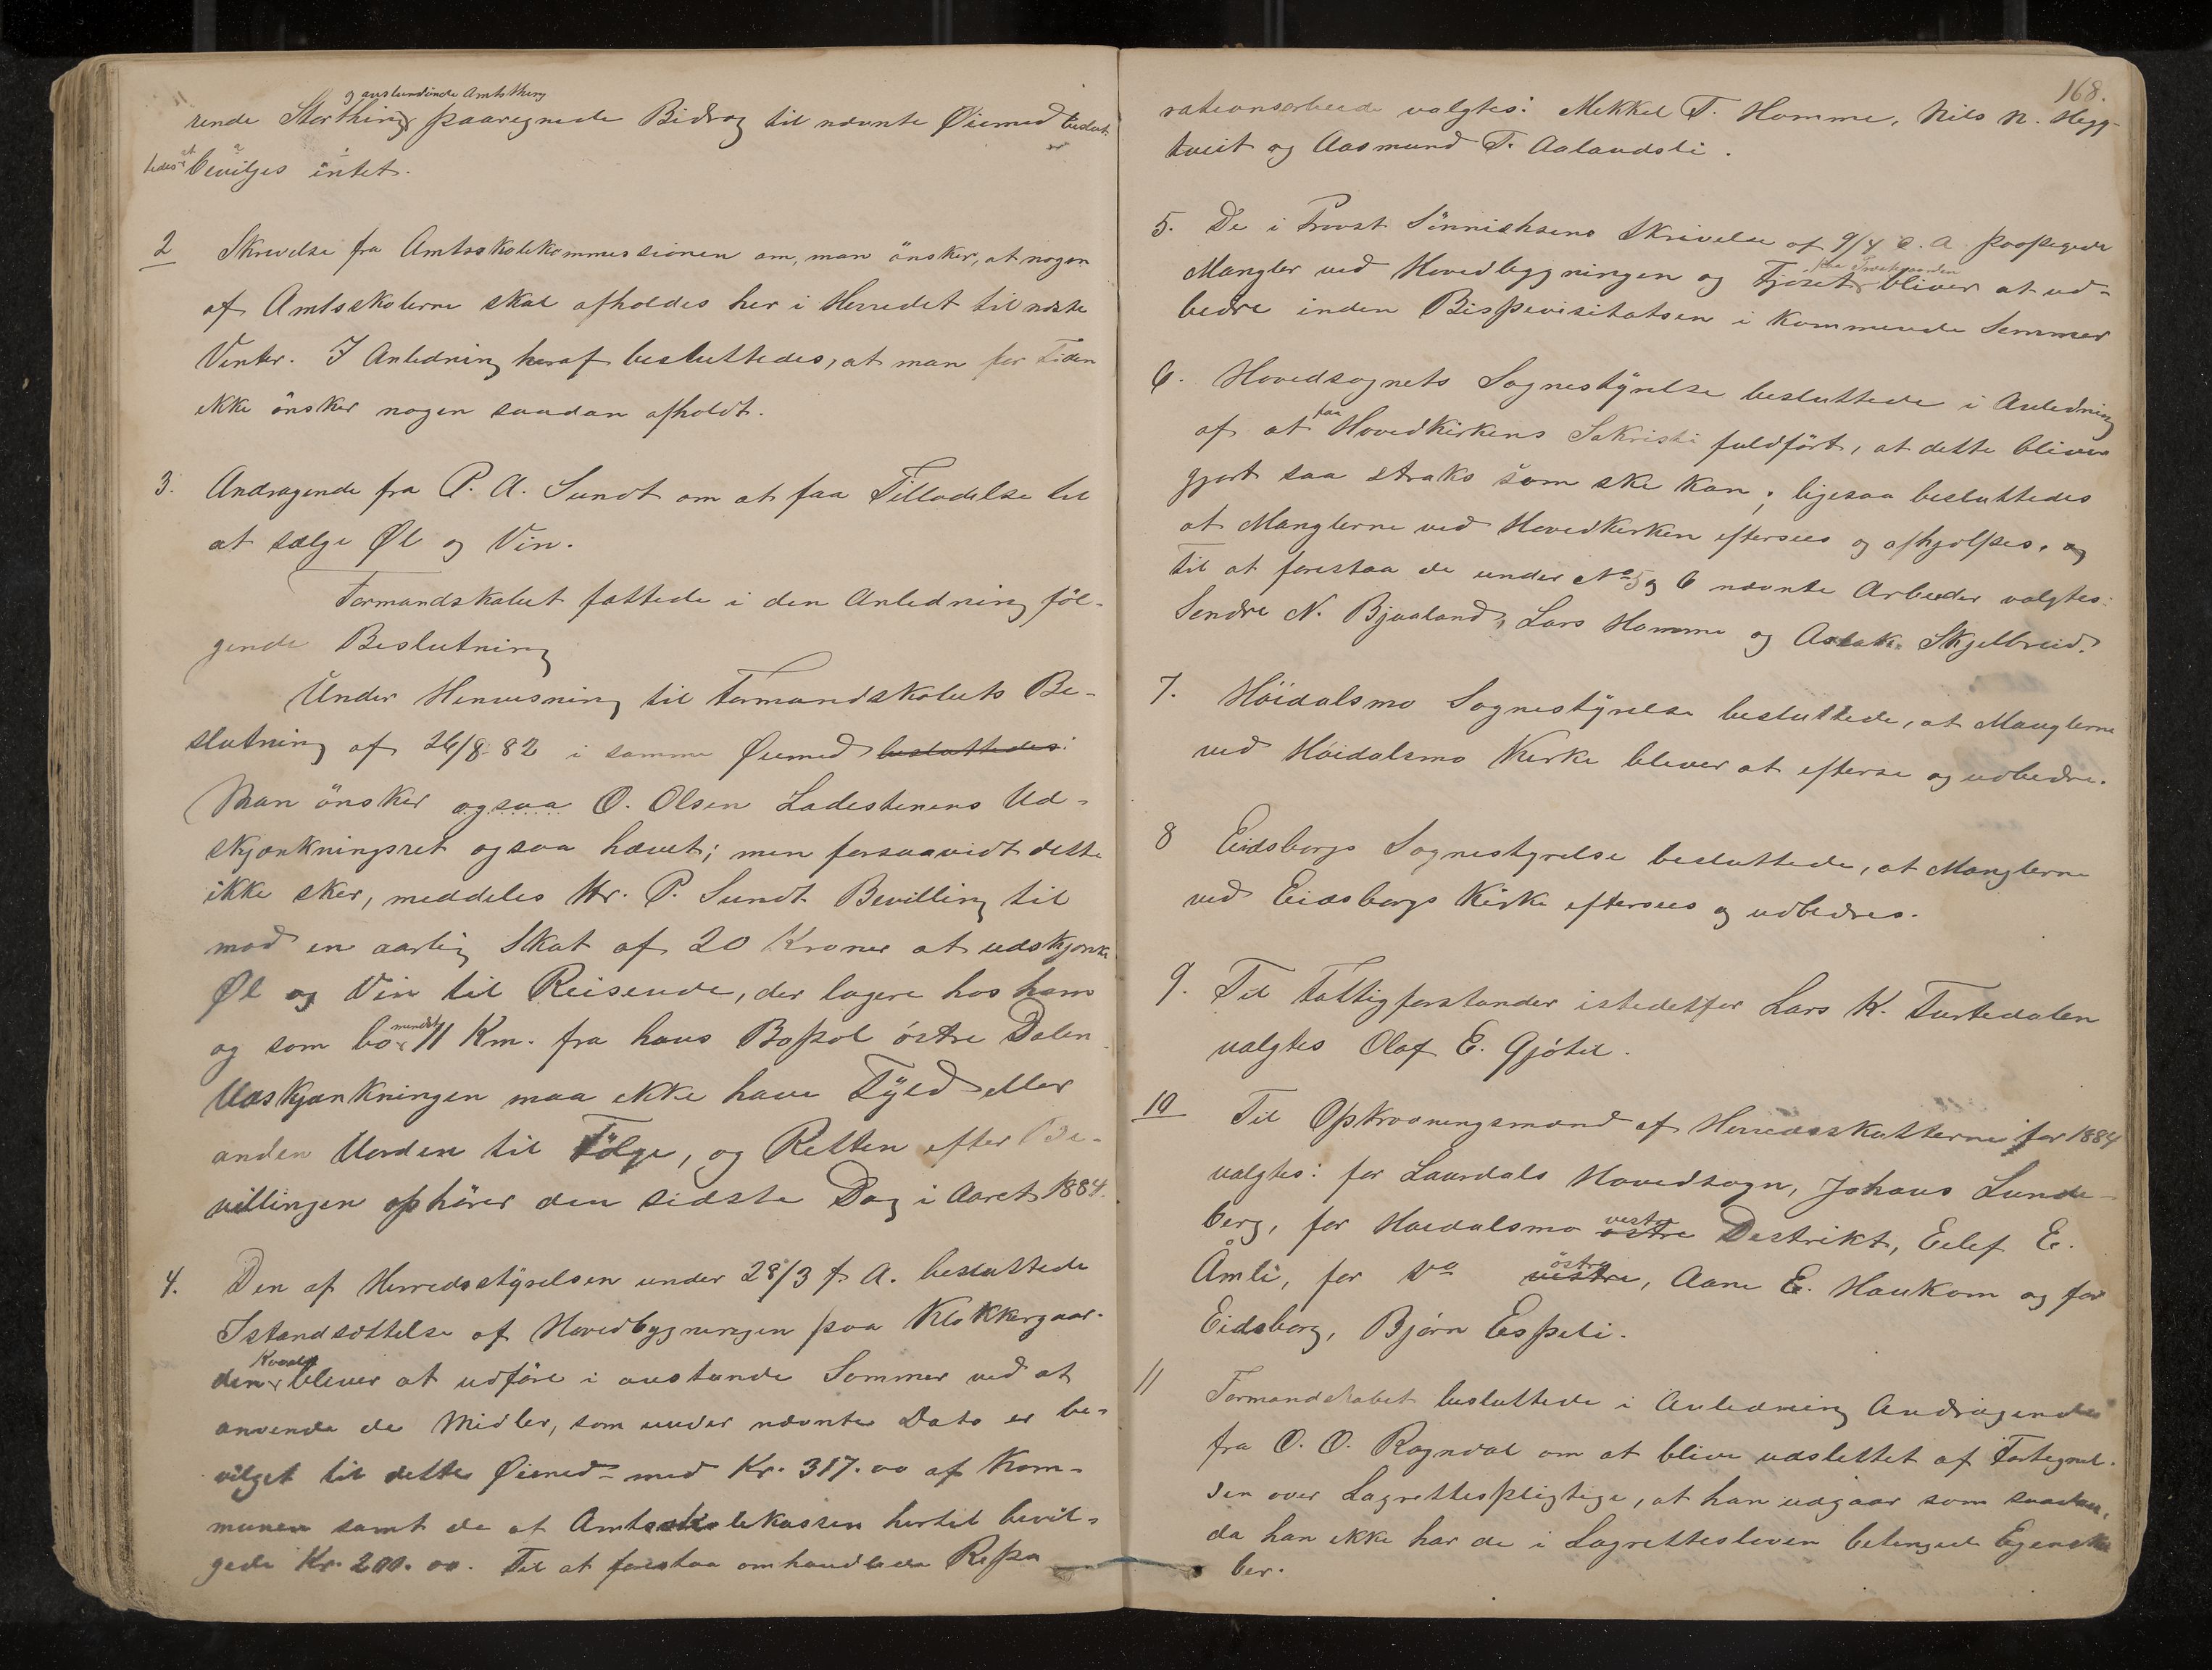 og anstundende Amtsthing
rende Storthing paaregnede Bidrag til nævnte Øiemed beslut-
tedes at bevilges intet.
2 Skrivelse fra Amtsskolekommissionen om, man önsker, at nogen
af Amtsskolerne skal afholdes her i Herredet til næste
Vinter. I Anledning heraf besluttedes, at man for Tiden
ikke önsker nogen saadan afholdt.
3. Andragende fra P. A. Sundt om at faa Tilladelse til
at sælge Øl og Vin.
Formandskabet fattede i den Anledning föl-
gende Beslutning
Under Henvisning til Formandskabets Be-
slutning af 26/8 82 i samme Øiemed besluttedes:
Man önsker ogsaa O. Olsen Ladestenens Ud-
skjænkningsret ogsaa hævet; men forsaavidt dette
ikke sker, meddeles Hr. P. Sundt Bevilling til
mod en aarlig Skat af 20 Kroner at udskjænke
Øl og Vin til Reisende, der logere hos ham
og som bo mindst 11 Km. fra hans Bopæl östre Dalen.
Udskjænkningen maa ikke have Fyld eller
anden Uorden til Fölge, og Retten efter Be-
villingen ophörer den sidste Dag i Aaret 1884.
4. Den af Herredsstyrelsen under 28/3 f. A. besluttede
Istandsættelse af Hovedbygningen paa Klokkergaar-
den Kvaale bliver at udföre i anstunde Sommer ved at
anvende de Midler, som under nævnte Dato er be-
vilget til dette Øiemed med Kr. 317.00 af Kom-
munen samt de af Amtsskolekassen hertil bevil-
gede Kr. 200.00. Til at forestaa omhandlede Repa
168.
rationsarbeide valgtes: Mekkel T. Homme, Nils N. Hegg-
tveit og Aasmund T. Aalandsli.
5. De i Provst Sinnichsens Skrivelse af 9/4 d. A. paapegede
Mangler ved Hovedbyggningen og Fjöset paa Prestegaarden bliver at ud-
bedre inden Bispevisitatsen i kommende Sommer
6. Hovedsognets Sognestyrelse besluttede i Anledning
af at faa Hovedkirkens Sakristi fuldfört, at dette bliver
gjort saa straks som ske kan; ligesaa besluttedes
at Manglerne ved Hovedkirken eftersees og afhjælpes. og
Til at forestaa de under No 5 og 6 nævnte Arbeider valgtes:
Sondre N. Bjaaland, Lars Homme og Aslak Skjelbreid.
7. Höidalsmo Sognestyrelse besluttede, at Manglerne
ved Höidalsmo Kirke bliver at efterse og udbedre.
8 Eidsborgs Sognestyrelse besluttede, at Manglerne
ved Eidsborgs Kirke eftersees og udbedres.
9. Til Fattigforstander istedetfor Lars K. Turtedalen
valgtes Olaf E. Gjötil.
10 Til Opkrævningsmænd af Herredsskatterne for 1884
valgtes: for Laurdals Hovedsogn, Johans Lunde-
berg, for Höidalsmo östre vestre Destrikt, Eilef E.
Åmli, for Do vestre östre, Aane E. Haukom og for
Eidsborg, Björn Espeli.
11 Formandskabet besluttede i Anledning Andragende
fra O. O. Rogndal om at blive udslettet af Fortegnel-
sen over Lagrettespligtige, at han udgaar som saadan,
da han ikke har de i Lagrettesloven betingede Egenska
ber.